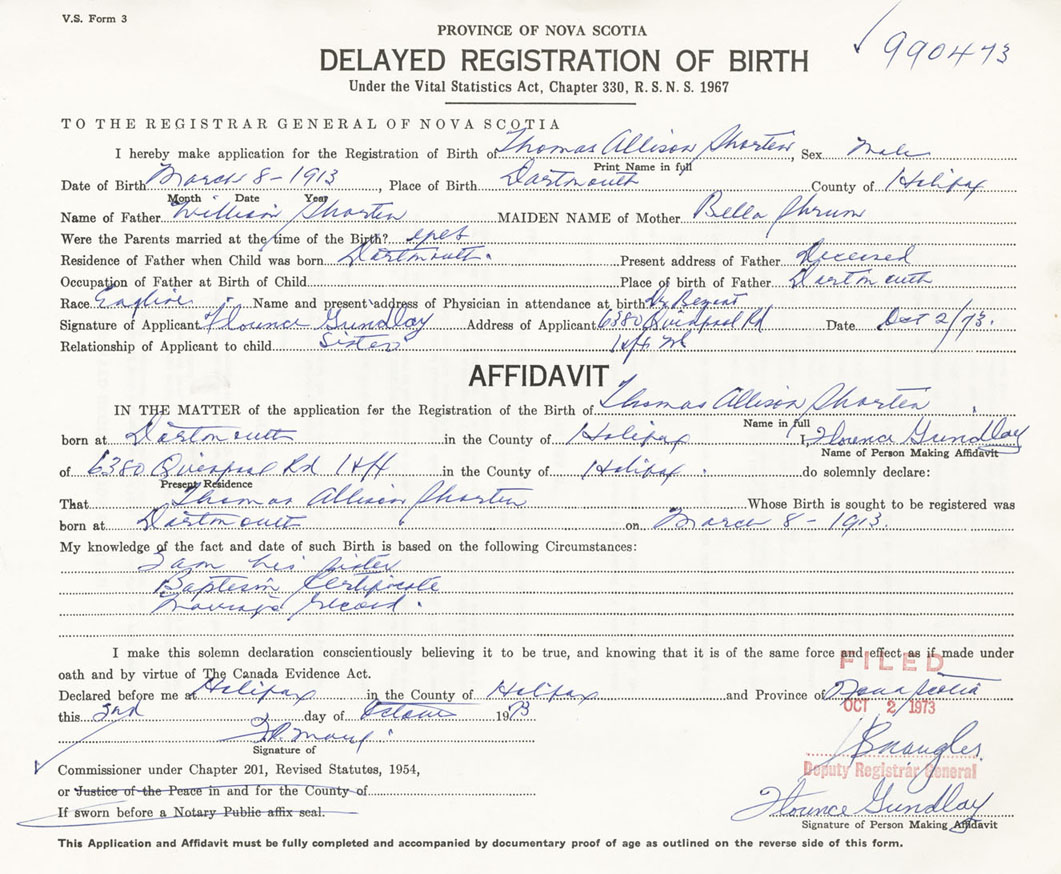 V.S. Form 3
PROVINCE OF NOVA SCOTIA
990473
DELAYED REGISTRATION OF BIRTH
Under the Vital Statistics Act, Chapter 330, R. S. N. S. 1967
TO THE REGISTRAR GENERAL OF NOVA SCOTIA
I hereby make application for the Registration of Birth of Thomas Allison Shorten, Sex Male
Print Name in full
Date of Birth March 8 - 1913, Place of Birth Dartmouth County of Halifax
Month Date Year
Name of Father William Shorten MAIDEN NAME of Mother Bella Shrum
Were the Parents married at the time of the Birth? yes
Residence of Father when Child was born Dartmouth. Present address of Father Deceased
Occupation of Father at Birth of Child Place of birth of Father Dartmouth
Race Name and present address of Physician in attendance at birth Dr
Signature of Applicant Florence Gundlay Address of Applicant 6380 Quinpool Rd Date Oct 2/73.
Relationship of Applicant to child Sister Hfx
AFFIDAVIT
IN THE MATTER of the application for the Registration of the Birth of Thomas Allison Shorten
Name in full
born at Dartmouth in the County of Halifax I, Florence Gundlay
Name of Person Making Affidavit
of 6380 Quinpool Rd Hfx in the County of Halifax. do solemnly declare:
Present Residence
That Thomas Allison Shorten Whose Birth is sought to be registered was
born at Dartmouth on March 8 - 1913.
My knowledge of the fact and date of such Birth is based on the following Circumstances:
I am his sister
Baptism Certificate
Marriage record.
I make this solemn declaration conscientiously believing it to be true, and knowing that it is of the same force and effect as if made under
oath and by virtue of The Canada Evidence Act.
FILED
Declared before me at Halifax in the County of Halifax and Province of Nova Scotia
this 2nd day of October 1973
OCT 2 1973
Signature of
Deputy Registrar General
Commissioner under Chapter 201, Revised Statutes, 1954,
or Justice of the Peace in and for the County of
Florence Gundlay
If sworn before a Notary Public affix seal.
Signature of Person Making Affidavit
This Application and Affidavit must be fully completed and accompanied by documentary proof of age as outlined on the reverse side of this form.